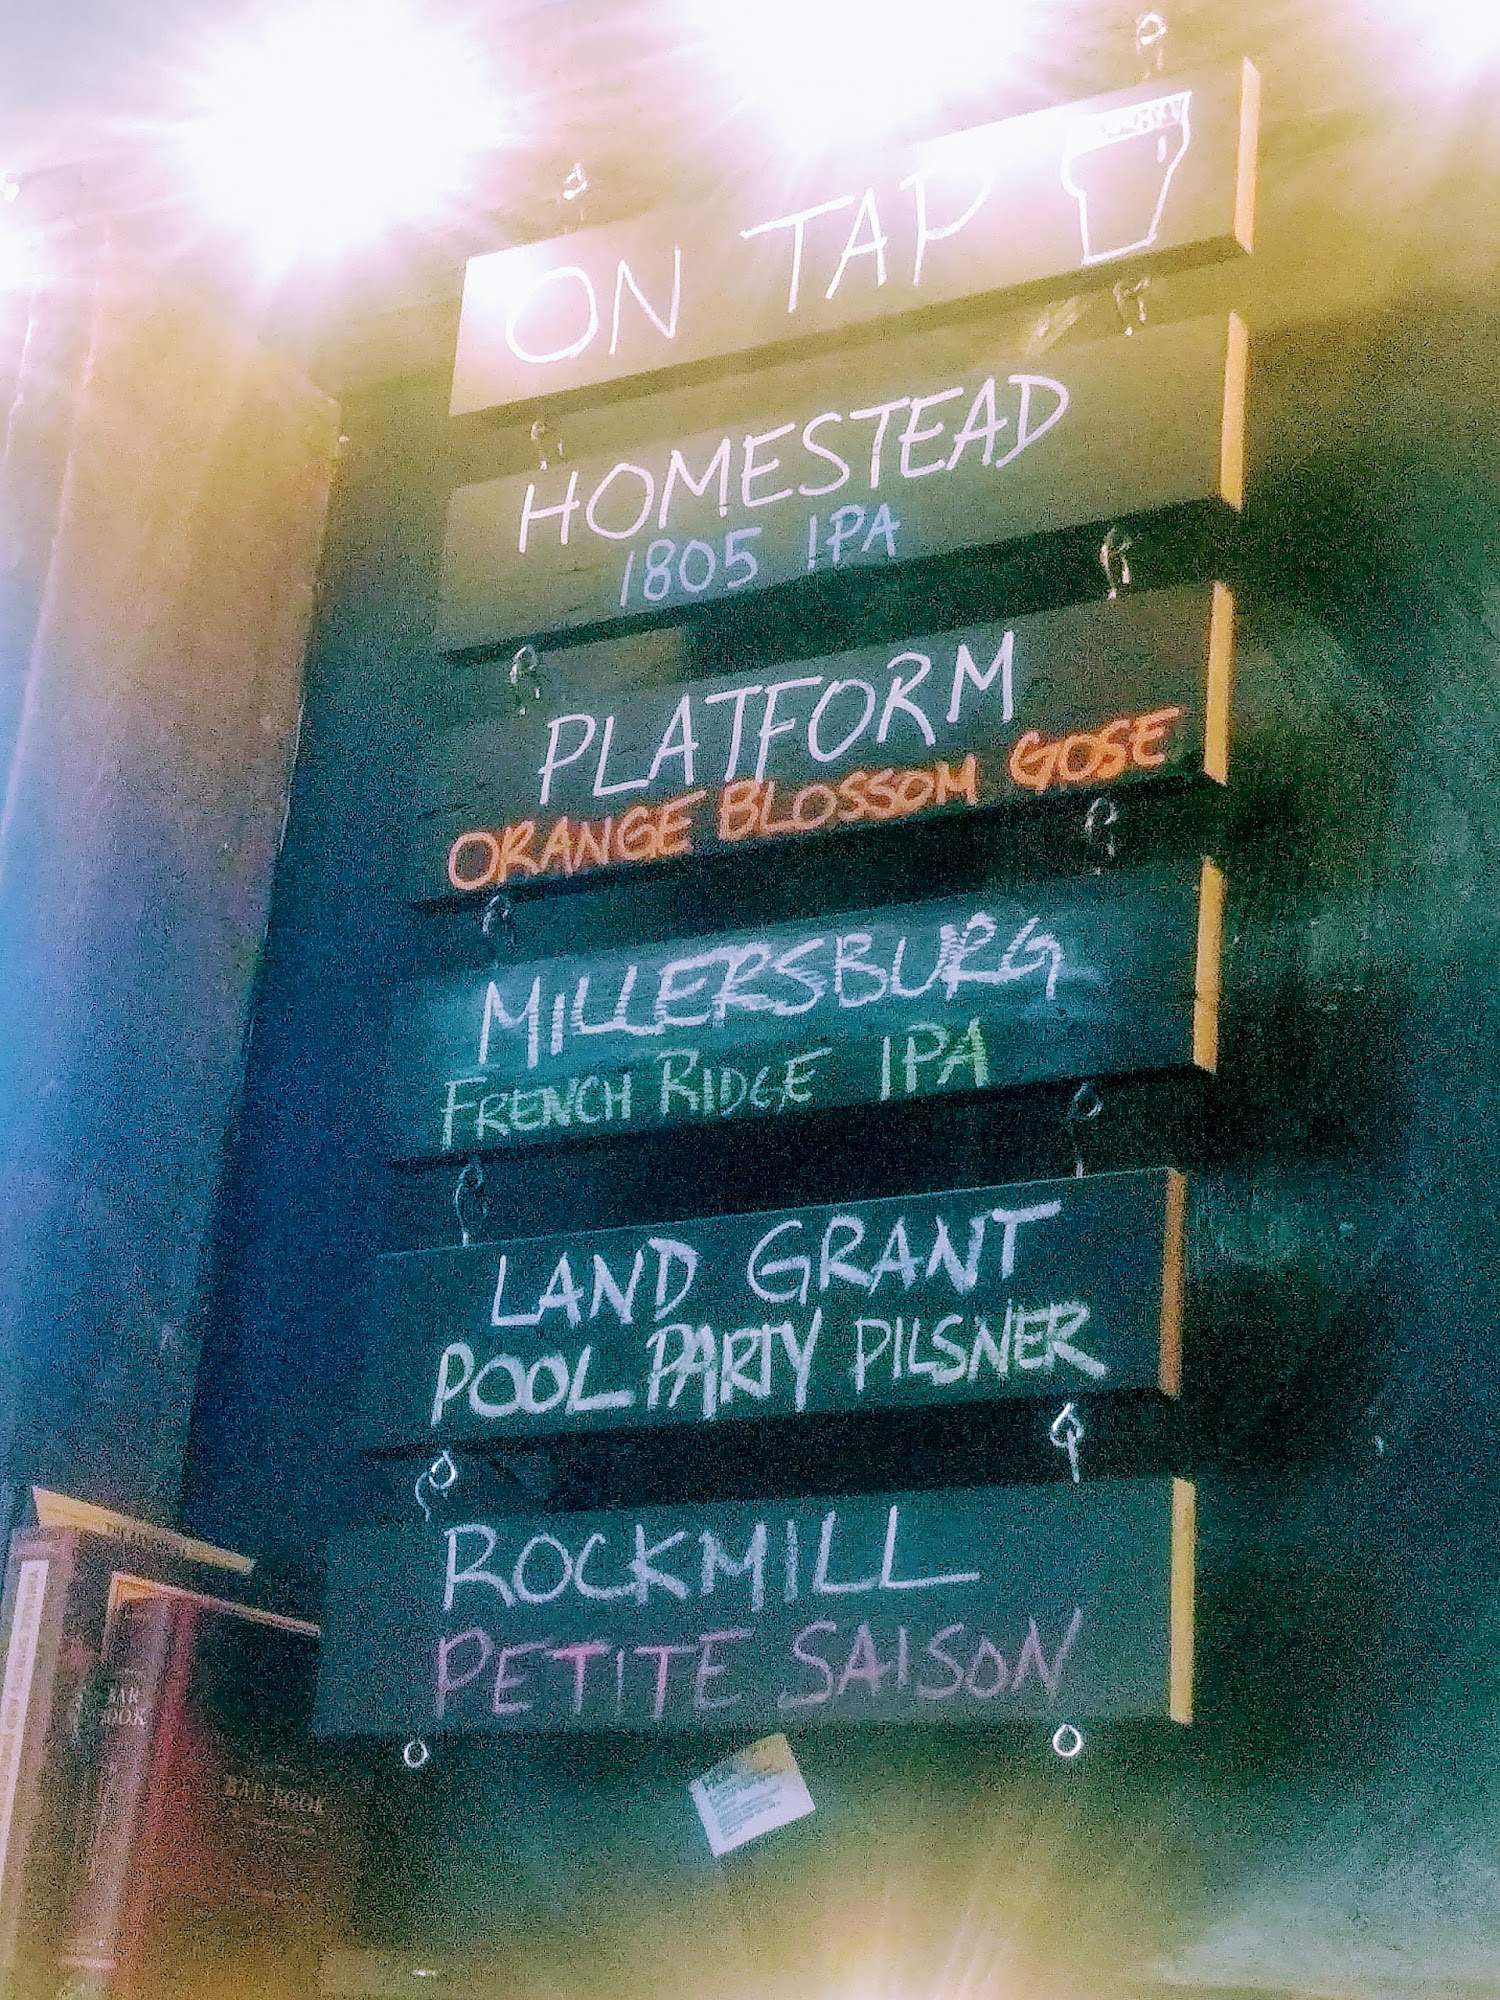 ON TAP
HOMESTEAD
1805 IPA
PLATFORM
ORANGE BLOSSOM GOSE
MILLERSBURG
FRENCH RIDGE IPA
LAND GRANT
POOL PARTY PILSNER
ROCKMILL
PETITE SAISON
BAR
BOOK
BAR BOOK